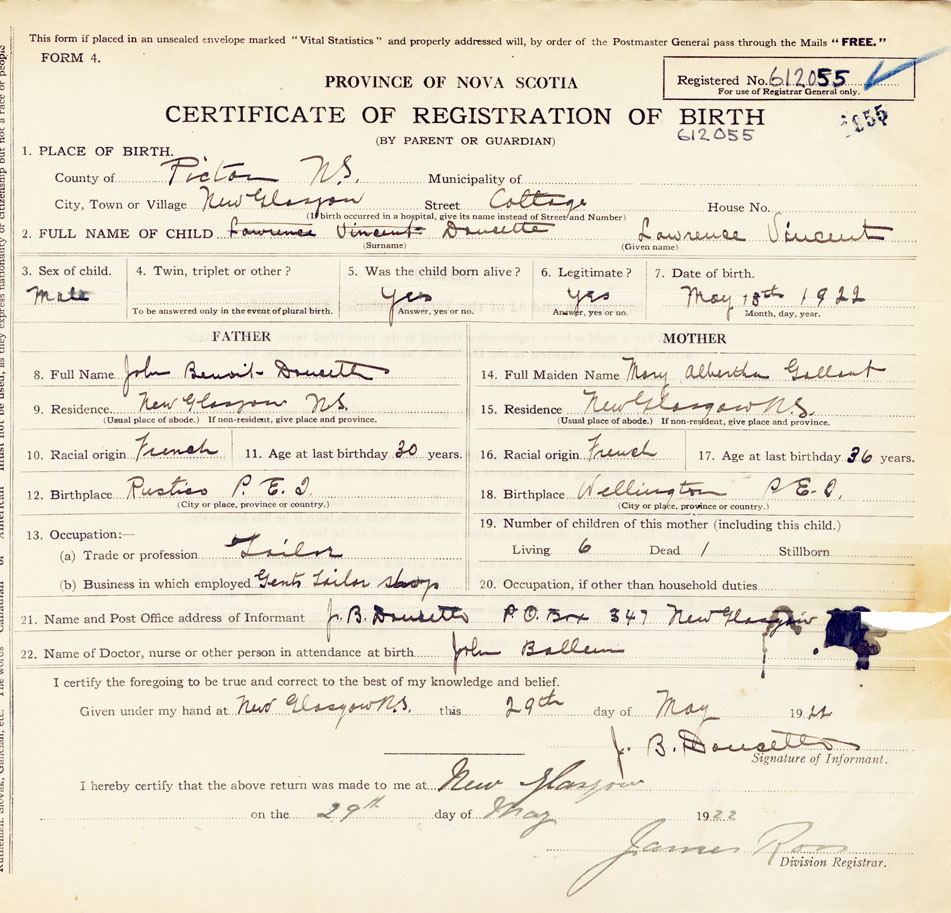 This form if placed in an unsealed envelope marked "Vital Statistics" and properly addressed will, by order of the Postmaster General pass through the Mails "FREE."
FORM 4.
PROVINCE OF NOVA SCOTIA
Registered No. 612055
For use of Registrar General only.
CERTIFICATE OF REGISTRATION OF BIRTH
612055
(BY PARENT OR GUARDIAN)
1. PLACE OF BIRTH.
County of Pictou N.S. Municipality of
City, Town or Village New Glasgow Street Cottage House No.
(If birth occurred in a hospital, give its name instead of Street and Number)
2. FULL NAME OF CHILD Lawrence Vincent Doucette Lawrence Vincent
(Surname) (Given name)
3. Sex of child. 4. Twin, triplet or other? 5. Was the child born alive? 6. Legitimate? 7. Date of birth.
Male Yes Yes May 13th 1922
To be answered only in the event of plural birth. Answer, yes or no. Answer, yes or no. Month, day, year.
FATHER MOTHER
8. Full Name John Benoit Doucette 14. Full Maiden Name Mary Albertha Gallant
9. Residence New Glasgow N.S. 15. Residence New Glasgow N.S.
(Usual place of abode.) If non-resident, give place and province. (Usual place of abode.) If non-resident, give place and province.
10. Racial origin French 11. Age at last birthday 30 years. 16. Racial origin French 17. Age at last birthday 36 years.
12. Birthplace Rustico P.E.I. 18. Birthplace Wellington P.E.I.
(City or place, province or country.) (City or place, province or country.)
19. Number of children of this mother (including this child.)
13. Occupation:—
(a) Trade or profession Tailor Living 6 Dead 1 Stillborn
(b) Business in which employed Gents Tailor shop 20. Occupation, if other than household duties
21. Name and Post Office address of Informant J. B. Doucette P.O. Box 347 New Glasgow
22. Name of Doctor, nurse or other person in attendance at birth. John Ballem
I certify the foregoing to be true and correct to the best of my knowledge and belief.
Given under my hand at New Glasgow N.S. this 29th day of May 1922
J. B. Doucette
Signature of Informant.
I hereby certify that the above return was made to me at New Glasgow
on the 29th day of May 1922
James Ross
Division Registrar.